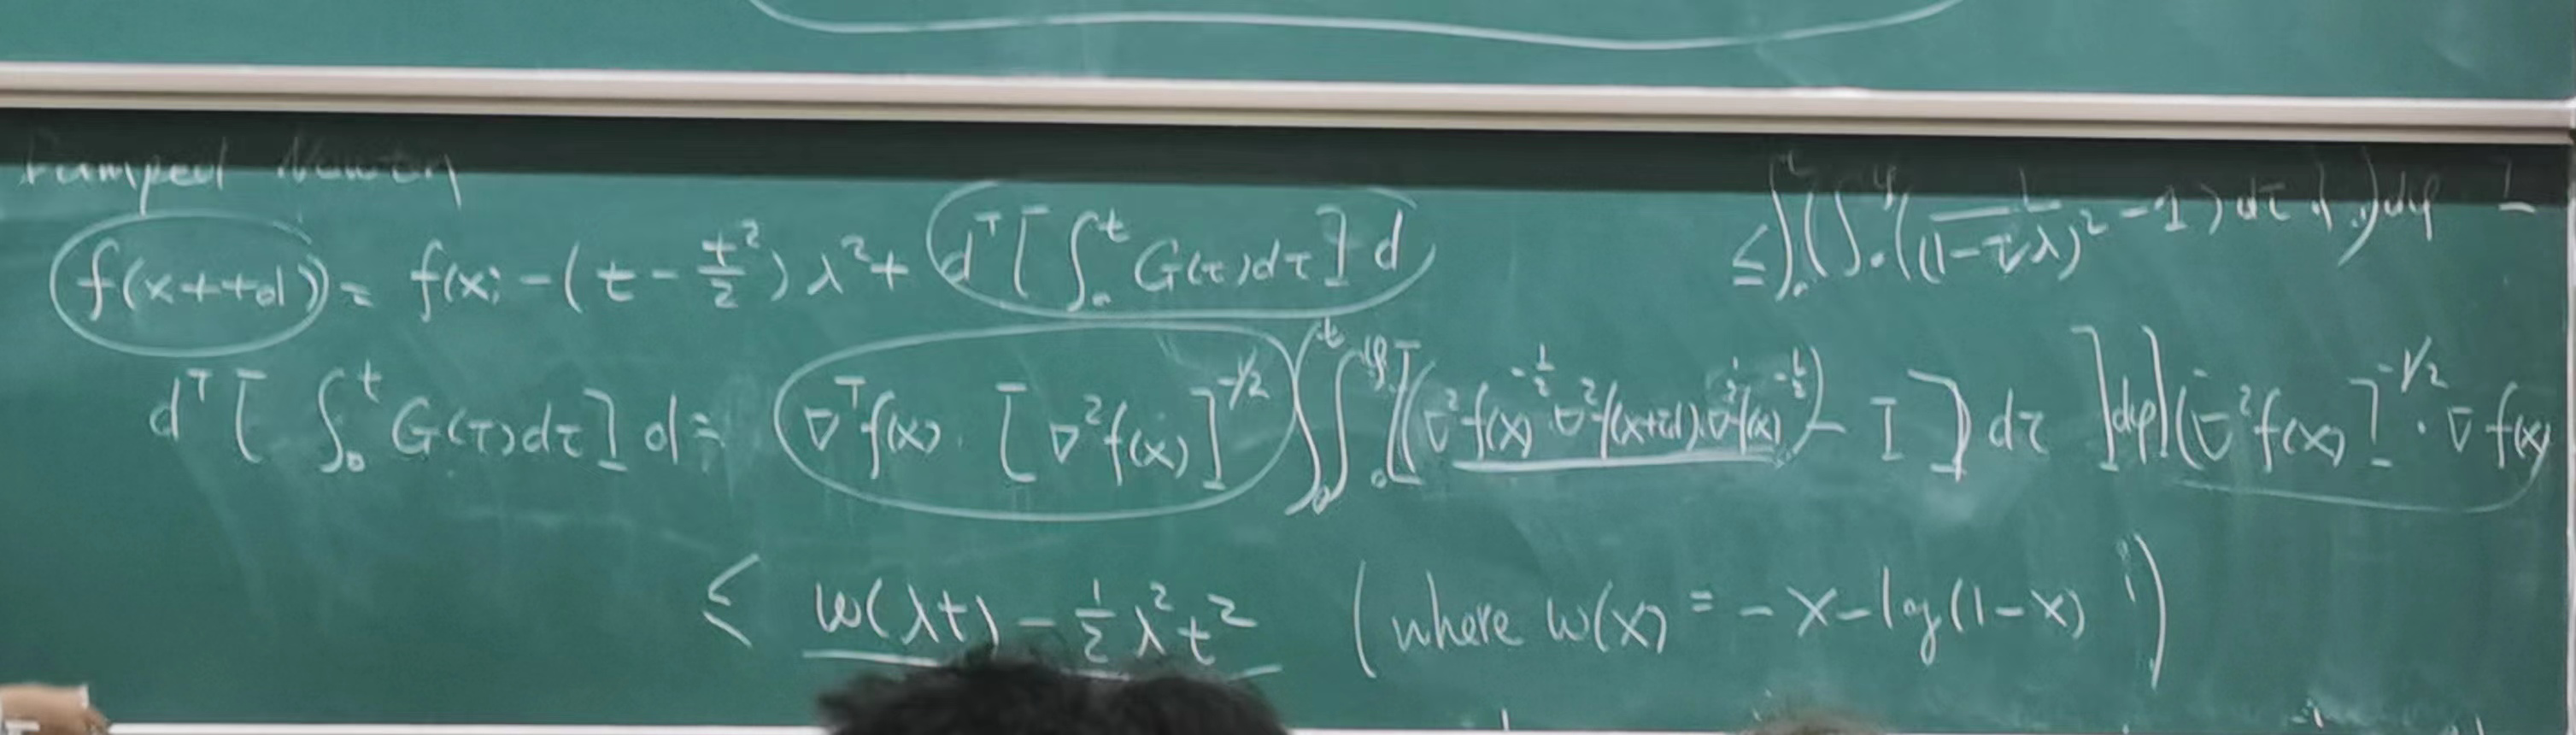 Damped Newton
f(x+td) = f(x) - (t - t²/2) λ² + d^T [ ∫₀^t G(τ)dτ ] d
≤ ∫₀^t ( ∫₀^φ ( 1/(1-τλ)² - 1 ) dτ ) dφ
d^T [ ∫₀^t G(τ)dτ ] d = ∇^T f(x) · [∇²f(x)]^{-1/2} ∫₀^t ∫₀^φ [ (∇²f(x)^{-1/2} · ∇²f(x+τd) · ∇²f(x)^{-1/2}) - I ] dτ ] dφ ] [∇²f(x)]^{-1/2} · ∇f(x)
≤ w(λt) - 1/2 λ²t² (where w(x) = -x-log(1-x))